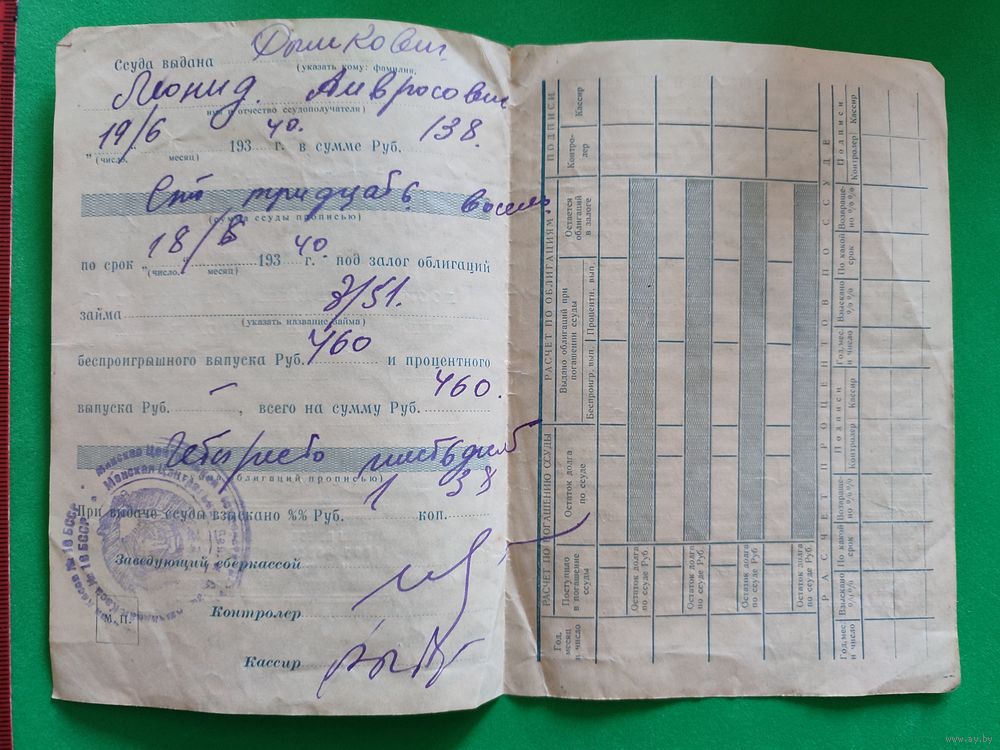 Ссуда выдана Дымкович
(указать кому: фамилия,
Леонид Амвросович
имя и отчество ссудополучателя)
"19/6 193 40. г. в сумме Руб. 138.
(число, месяц)
Сто тридцать восемь
(сумма ссуды прописью)
по срок "18/ 193 40. г. под залог облигаций
(число, месяц)
займа 3/51.
(указать название займа)
беспроигрышного выпуска Руб. 460 и процентного
выпуска Руб. – , всего на сумму Руб. 460.
Четыреста шестьдесят
облигаций прописью)
При выдаче ссуды взыскано %% Руб. 1 коп. 38
Заведующий сберкассой
Контролер
М. П.
Кассир
Минская Центр
Касса № 10 БССР
РАСЧЕТ ПО ПОГАШЕНИЮ ССУДЫ
Год, месяц и число
Поступило в погашение ссуды
Остаток долга по ссуде
РАСЧЕТ ПО ОБЛИГАЦИЯМ
Выдано облигаций при погашении ссуды
Беспроигр. вып.
Процентн. вып
Остается облигаций в залоге
ПОДПИСИ
Контролер
Кассир
Остаток долга по ссуде Руб
Остаток долга по ссуде Руб.
Остаток долга по ссуде Руб.
Остаток долга по ссуде Руб.
РАСЧЕТ ПРОЦЕНТОВ ПО ССУДЕ
Год, мес. и число
Взыскано %%
По какой срок
Возвращено %%
Подписи
Контролер
Кассир
Год, мес. и число
Взыскано %%
По какой срок
Возвращено %%
Подписи
Контролер
Кассир
www.ay.by